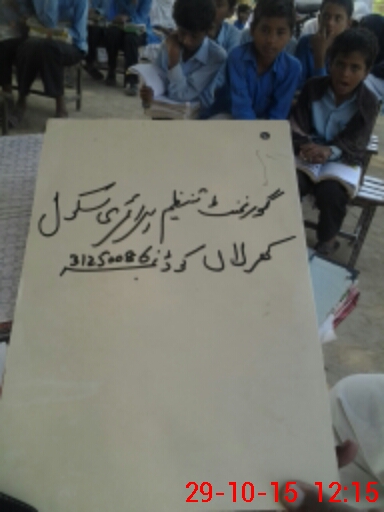 گورنمنٹ تنظیم پرائمری سکول
کھرلاں کوڈ نمبر 31250086
29-10-15 12:15